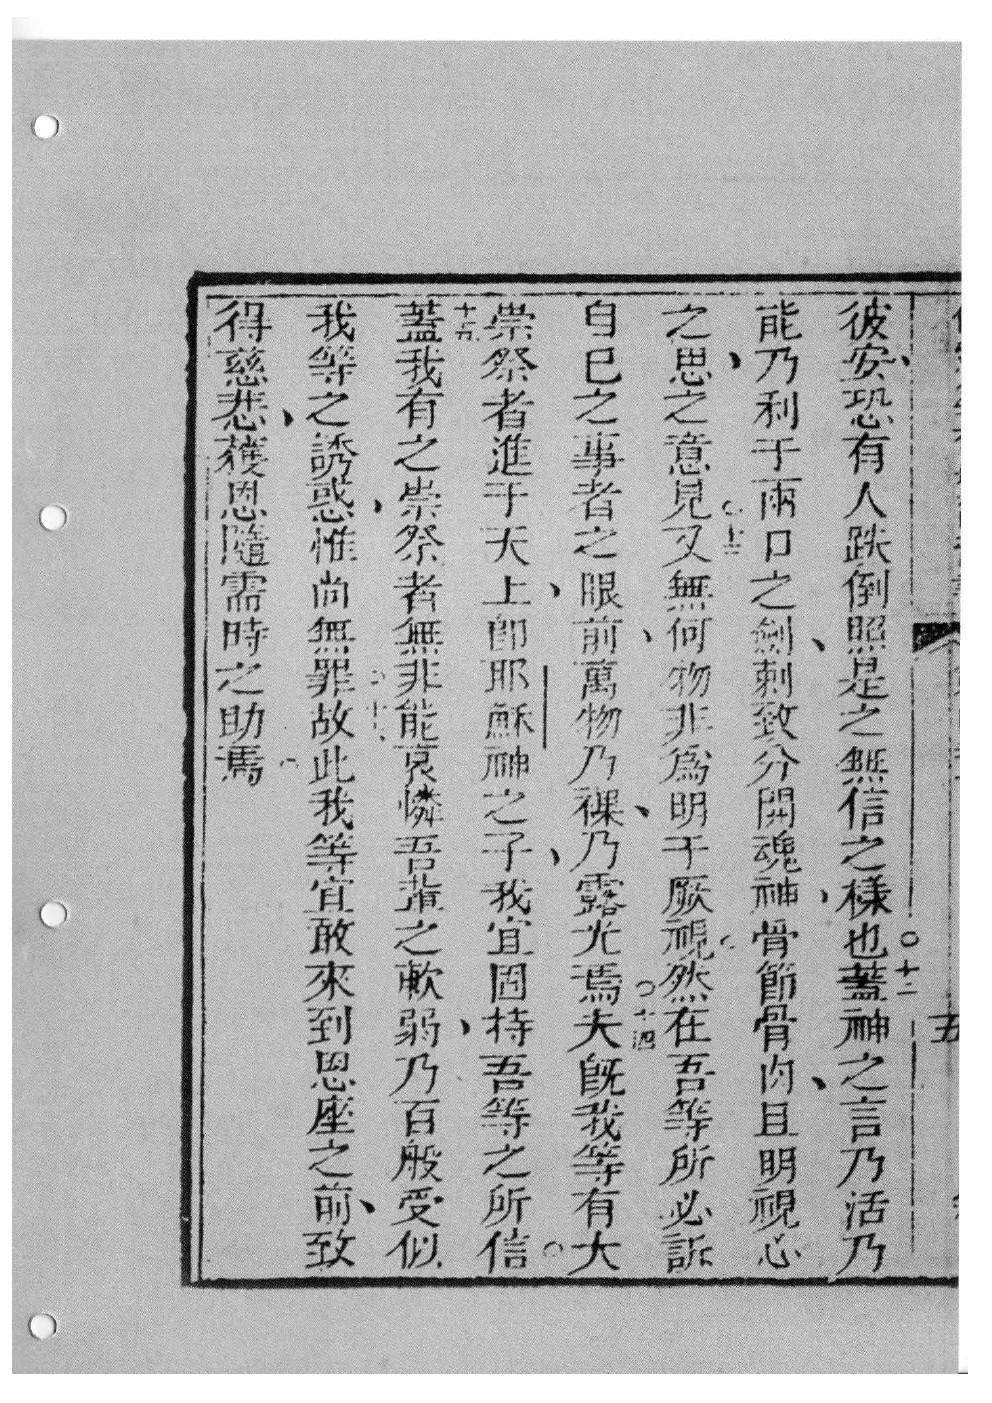 五
彼安、恐有人跌倒照是之無信之樣也○十二蓋神之言乃活乃
能乃利于兩口之劍、刺致分開魂神、骨節骨肉、且明視心
之思、之意見○十三又無何物非爲明于厥視。然在吾等所必訴
自己之事者之眼前、萬物乃裸、乃露光焉○十四夫旣我等有大
崇祭者進于天上、卽耶穌神之子、我宜固持吾等之所信。
十五蓋我有之崇祭者無非能哀憐吾輩之軟弱、乃百般受似
我等之誘惑、惟尚無罪○十六故此我等宜敢來到恩座之前、致
得慈悲、獲恩隨需時之助焉。